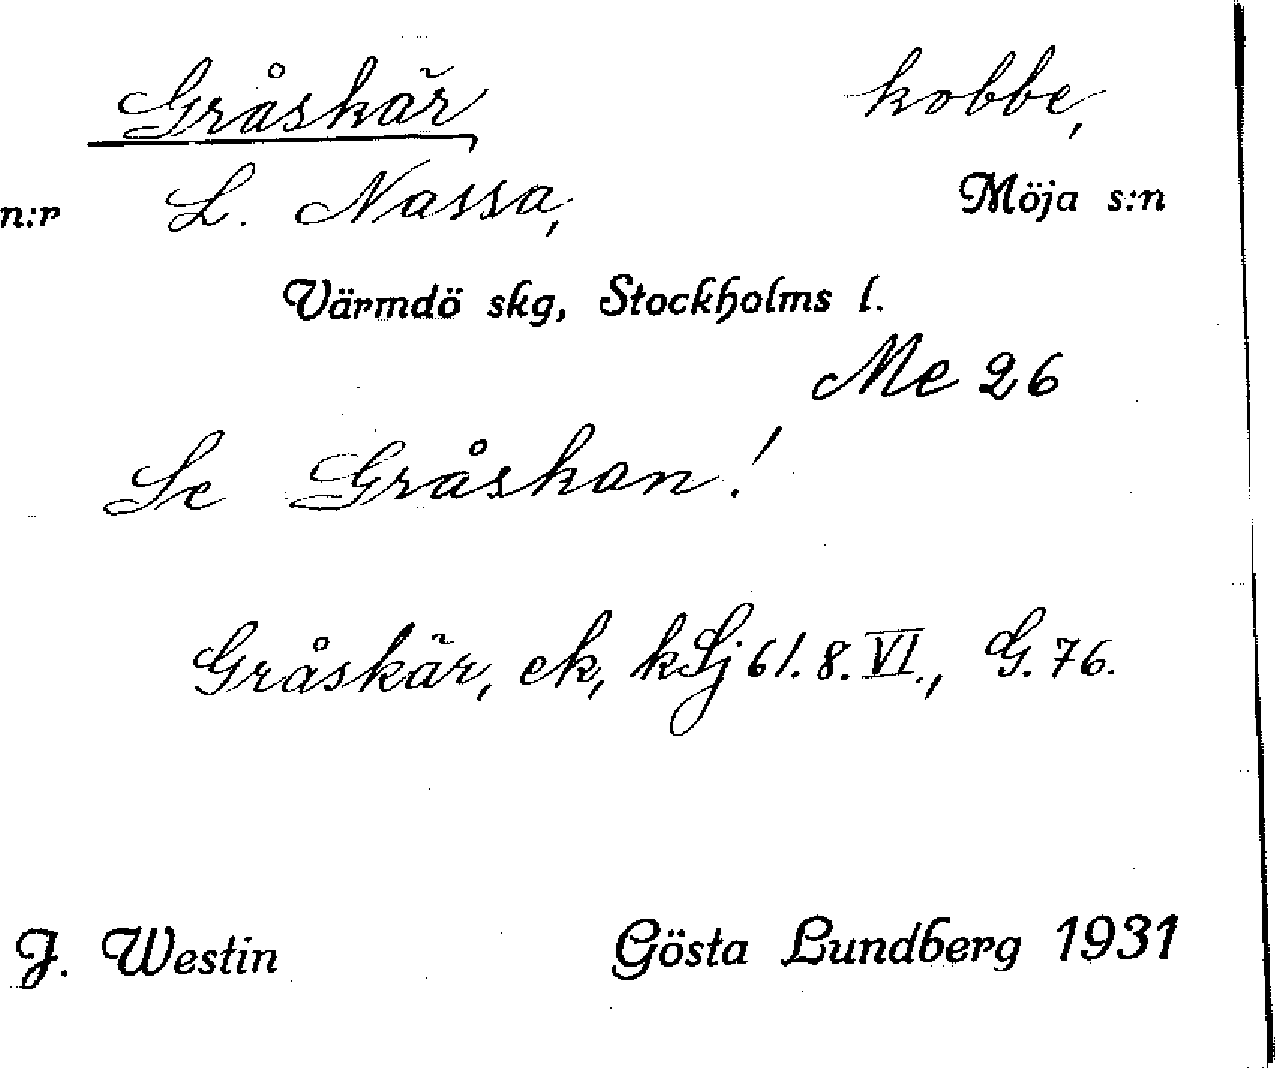 Gråskär, kobbe,
n:r L. Nassa, Möja s:n
Värmdö skg, Stockholms l.
Me 26
Se Gråskan!
Gråskär, ek, kSj 61. 8. VI., G. 76.
J. Westin Gösta Lundberg 1931